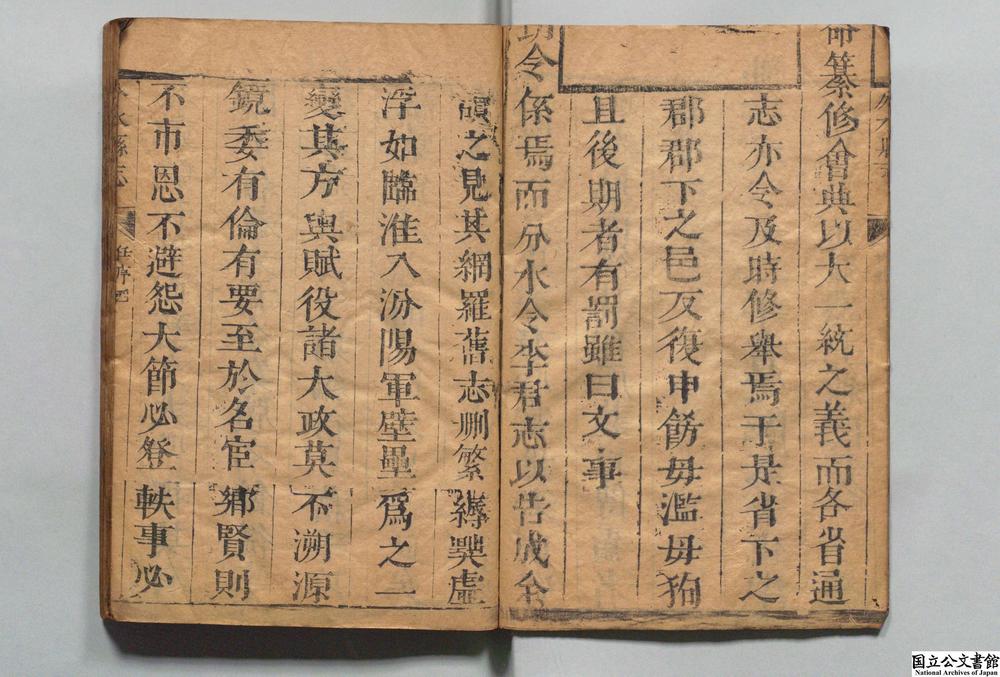 命纂修會典以大一統之義而各省通
志亦令及時修舉焉于是省下之
郡郡下之邑反復申飭毋濫毋狥
且後期者有罰雖曰文事
功令係焉而分水令李君志以告成余
讀之見其網羅舊志刪繁縟典虛
浮如臨淮入汾陽軍壁壘爲之一
變其方輿賦役諸大政莫不溯源
鏡委有倫有要至於名宦鄉賢則
不市恩不避怨大節必登軼事必
水縣志
序
国立公文書館
National Archives of Japan